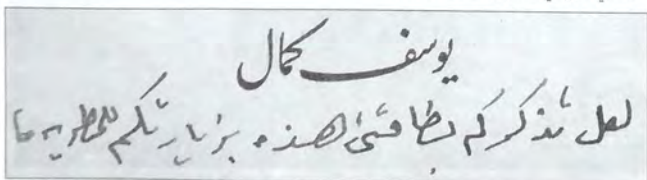 يوسف كمال
لعل تذكركم بطاقتى هذه بزيارتكم للمطريه